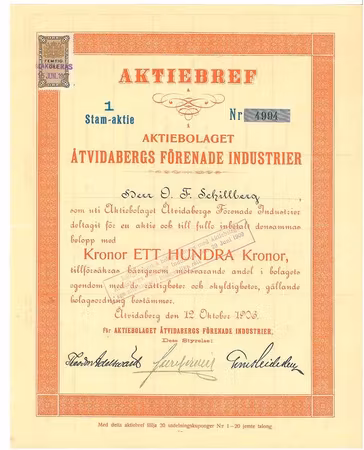 AKTIEBREF
1
Stam-aktie
Nr 4994
AKTIEBOLAGET
ÅTVIDABERGS FÖRENADE INDUSTRIER
Herr O. F. Schillberg
som uti Aktiebolaget Åtvidabergs Förenade Industrier
deltagit för en aktie och till fullo inbetalt densammas
belopp med
Kronor ETT HUNDRA Kronor,
tillförsäkras härigenom motsvarande andel i bolagets
egendom med de rättigheter och skyldigheter, gällande
bolagsordning bestämmer.
Åtvidaberg den 12 Oktober 1906.
för AKTIEBOLAGET ÅTVIDABERGS FÖRENADE INDUSTRIER.
Dess Styrelse:
Med detta aktiebref följa 20 utdelningskuponger Nr 1-20 jemte talong.